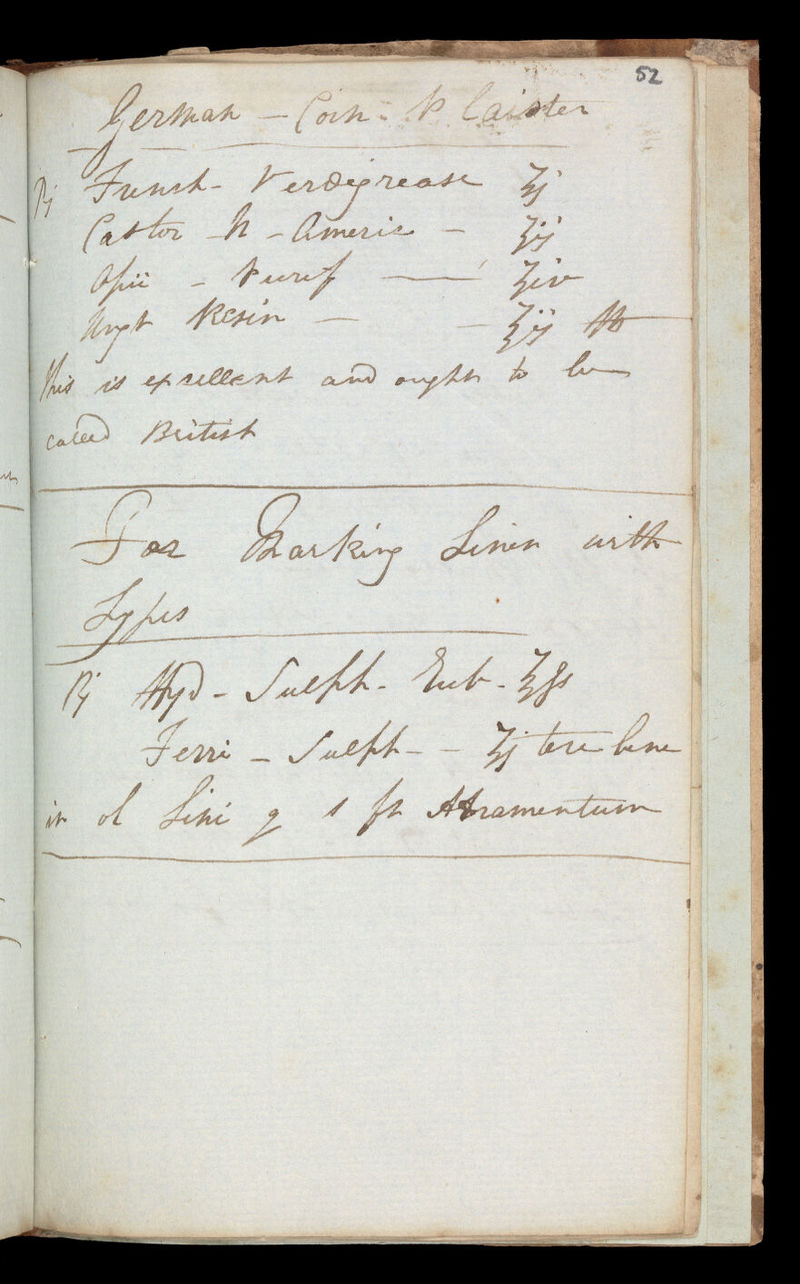 52
German – Corn Plaister
℞ French – Verdigrease ʒj
Castor – N – Americ – ʒij
Opii – Purif — ʒiv
Ungt Resin – – ʒij ft
This is excellent and ought to be
called British
For Marking Linen with
Types
℞ Hyd – Sulph – Rub – ʒſs
Ferri – Sulph – – ʒj tere bene
in ol Lini q s ft Atramentum